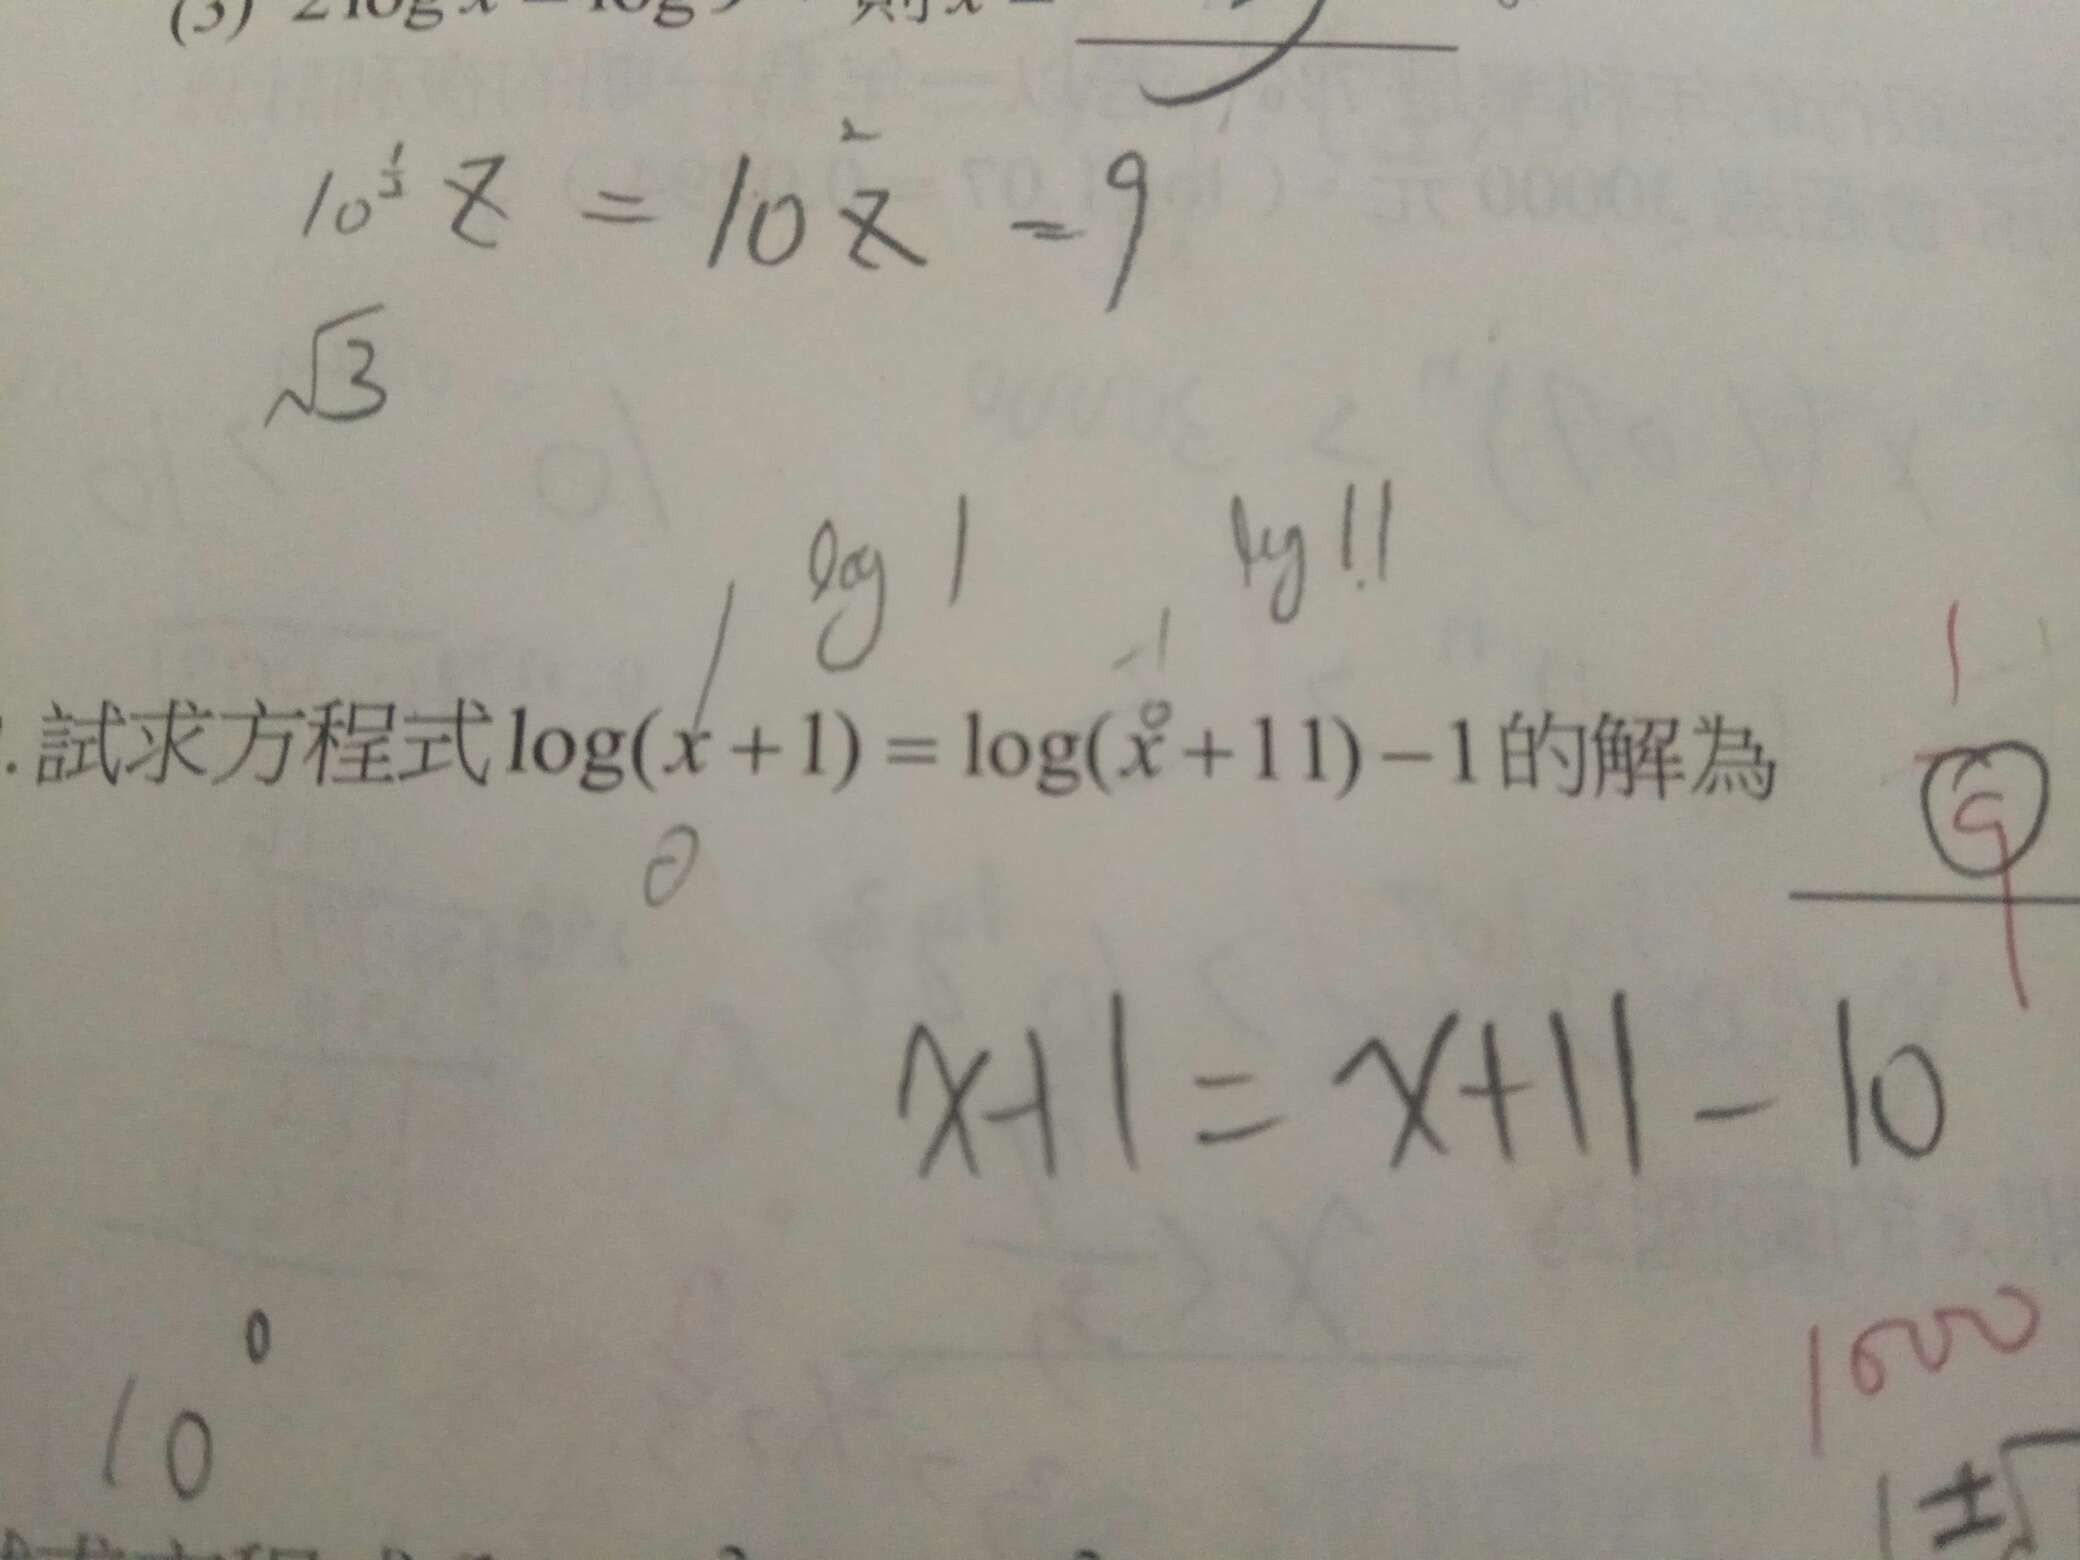 (3) 2 log x = log 9 則 x =
10^{1/2} Z = 10^{2} Z = 9
√3
log 1 log 11
-1
1
.試求方程式log(x+1)=log(x+11)−1的解為
0
9
x+1 = x+11 - 10
10^0
1000
1±√